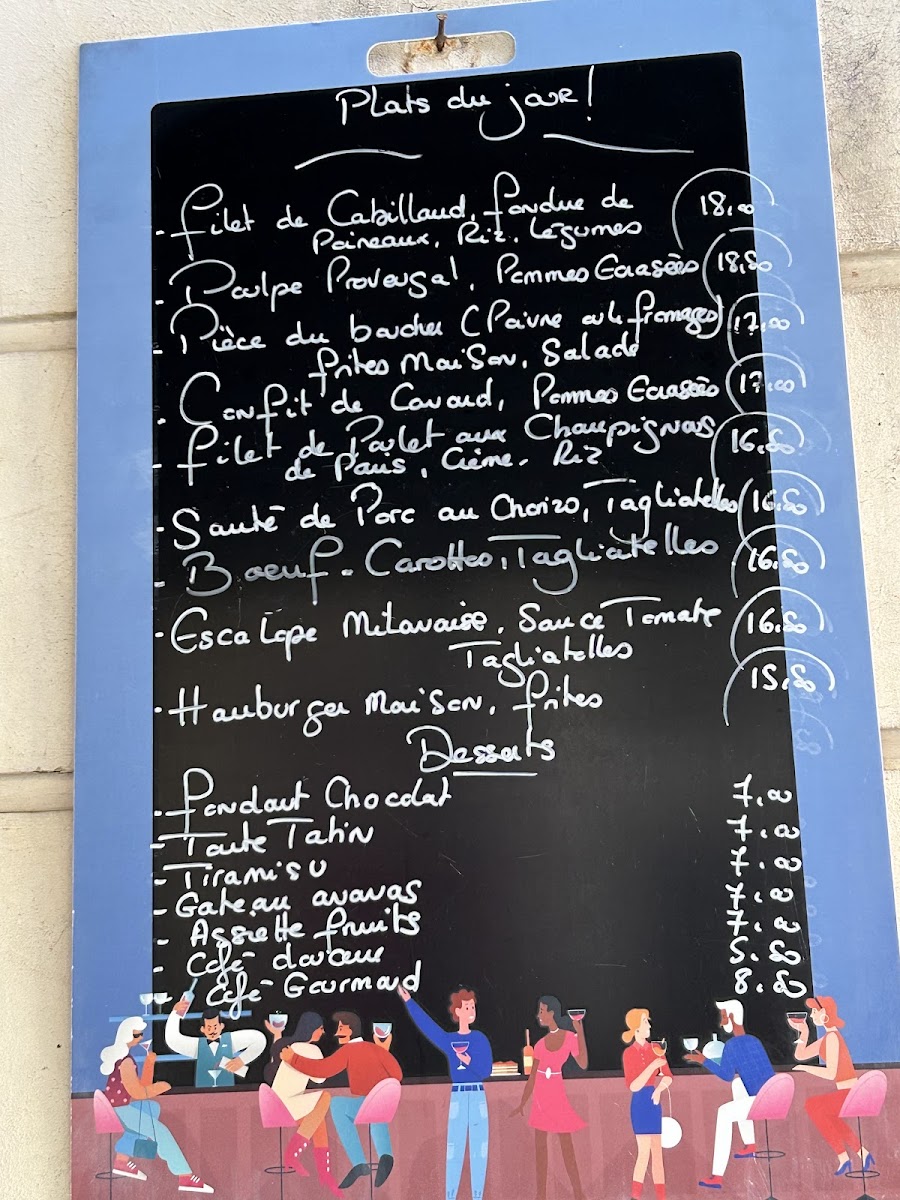 Plats du jour!
- Filet de Cabillaud, fondue de 18,00
Poireaux, Riz, légumes
- Poulpe Provençal, Pommes Ecrasées 18,80
- Pièce du boucher (Poivre ou le fromages) 17,00
frites Maison, Salade
- Confit de Canard, Pommes Ecrasées 17,00
- filet de Poulet aux Champignons 16,80
de Paris, Crème. Riz
- Sauté de Porc au Chorizo, Tagliatelles 16,80
- Boeuf - Carottes, Tagliatelles 16,80
- Escalope Milanaise, Sauce Tomate 16,80
Tagliatelles
- Hamburger Maison, frites 15,80
Desserts
- fondant Chocolat 7,00
- Tarte Tatin 7,00
- Tiramisu 7,00
- Gateau ananas 7,00
- Assiette fruits 7,00
- Café douceur 5,80
- Café Gourmand 8,80